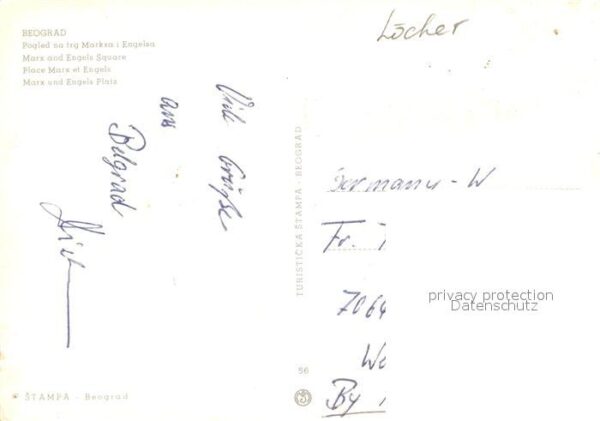 BEOGRAD
Pogled na trg Marksa i Engelsa
Marx and Engels Square
Place Marx et Engels
Marx und Engels Platz
Löcher
Viele Grüße
aus
Belgrad
TURISTIČKA ŠTAMPA - BEOGRAD
Germany - W
Fr.
7064
privacy protection
Datenschutz
By
56
ŠTAMPA - Beograd